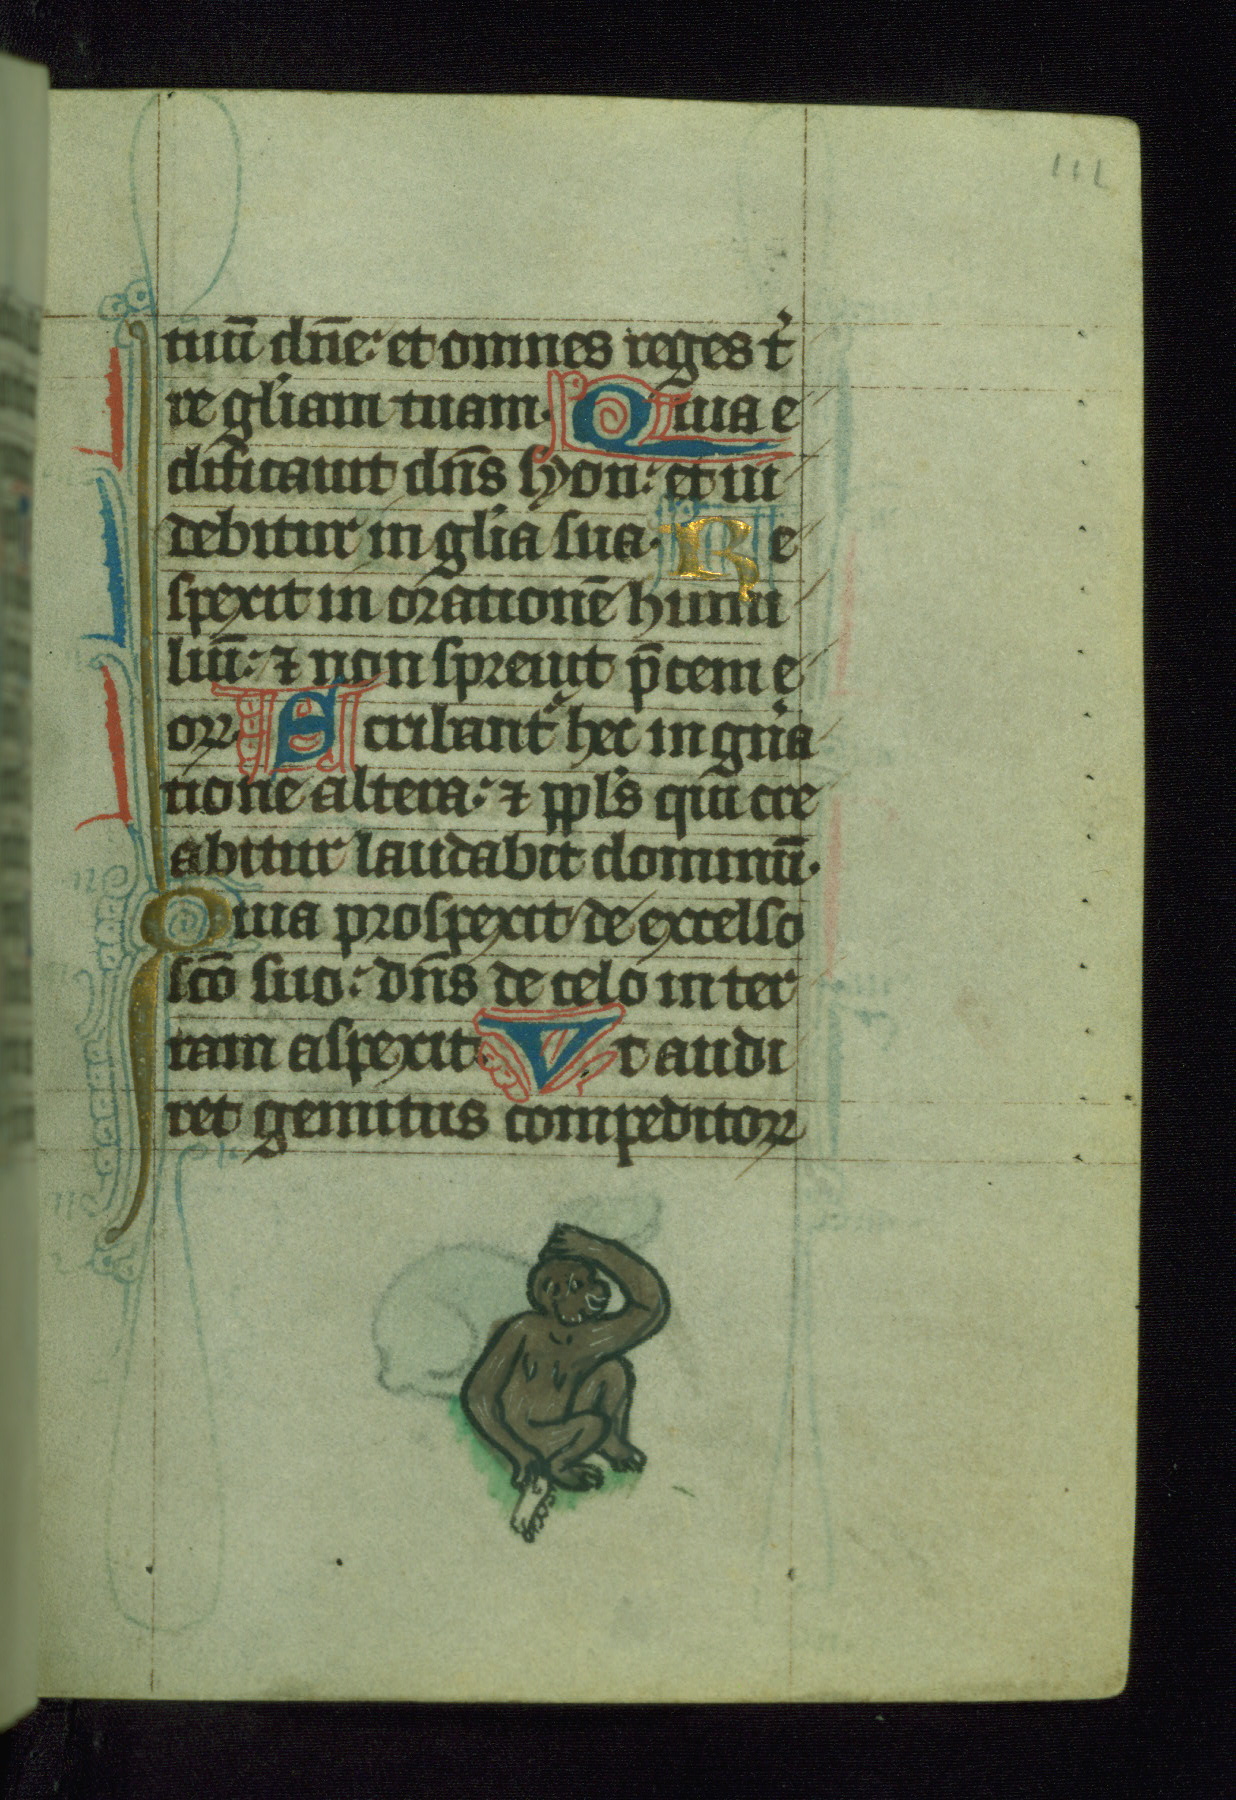 111
tuū dn̄e: et omnes reges t̉
re gl̉iam tuam. Quia e
dificauit dn̄s syon: et ui
debitur in gl̉ia sua. Re
spexit in orationē humi
liū: ⁊ non spreuit p̄cem e
oꝝ Scribant̉ hec in gn̉a
tione altera: ⁊ ppl̉s qui cre
abitur laudabit dominū.
Quia prospexit de excelso
scō suo: dn̄s de celo in ter
ram aspexit. Vt audi
ret gemitus compeditoꝝ